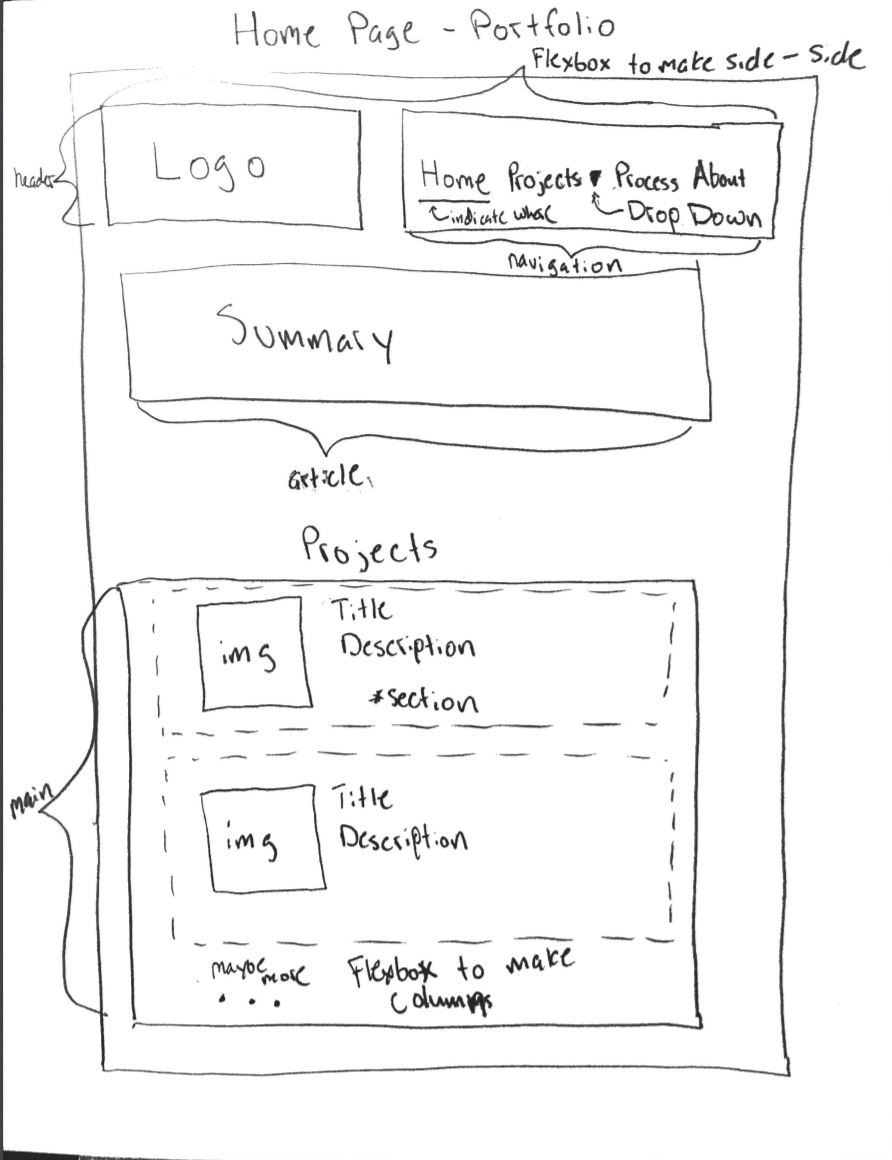 Home Page - Portfolio
Flexbox to make side - side
header
Logo
Home Projects ▼ Process About
indicate
Drop Down
navigation
Summary
article
Projects
img
Title
Description
*section
main
img
Title
Description
maybe more
...
Flexbox to make
columns